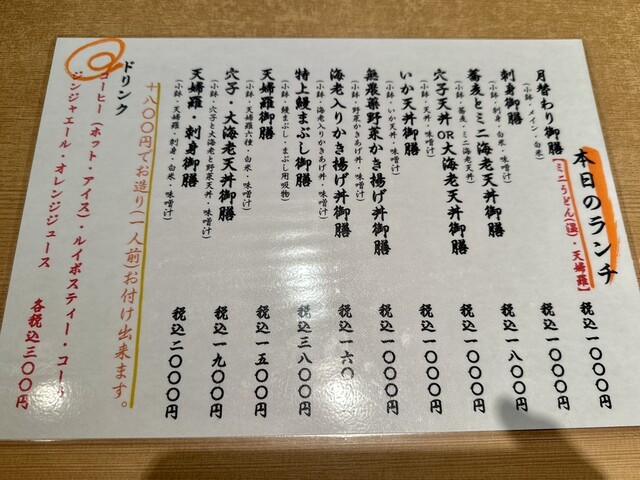 本日のランチ
月替わり御膳【ミニうどん(温)・天婦羅】 税込一〇〇〇円
(小鉢・メイン・白米)
刺身御膳 税込一〇〇〇円
(小鉢・刺身・白米・味噌汁)
蕎麦とミニ海老天丼御膳 税込一八〇〇円
(小鉢・蕎麦・ミニ海老天丼)
穴子天丼OR大海老天丼御膳 税込一〇〇〇円
(小鉢・天丼・味噌汁)
いか天丼御膳 税込一〇〇〇円
(小鉢・いか天丼・味噌汁)
無農薬野菜かき揚げ丼御膳 税込一〇〇〇円
(小鉢・野菜かきあげ丼・味噌汁)
海老入りかき揚げ丼御膳 税込一六〇
(小鉢・海老入りかきあげ丼・味噌汁)
特上鰻まぶし御膳 税込三八〇〇円
(小鉢・鰻まぶし・まぶし用吸物)
天婦羅御膳 税込一五〇〇円
(小鉢・天婦羅六種・白米・味噌汁)
穴子・大海老天丼御膳 税込一九〇〇円
(小鉢・穴子と大海老と野菜天丼・味噌汁)
天婦羅・刺身御膳 税込二〇〇〇円
(小鉢・天婦羅・刺身・白米・味噌汁)
+八〇〇円でお造り(一人前)お付け出来ます。
ドリンク
コーヒー(ホット・アイス)・ルイボスティー・コー
ジンジャエール・オレンジジュース 各税込三〇〇円